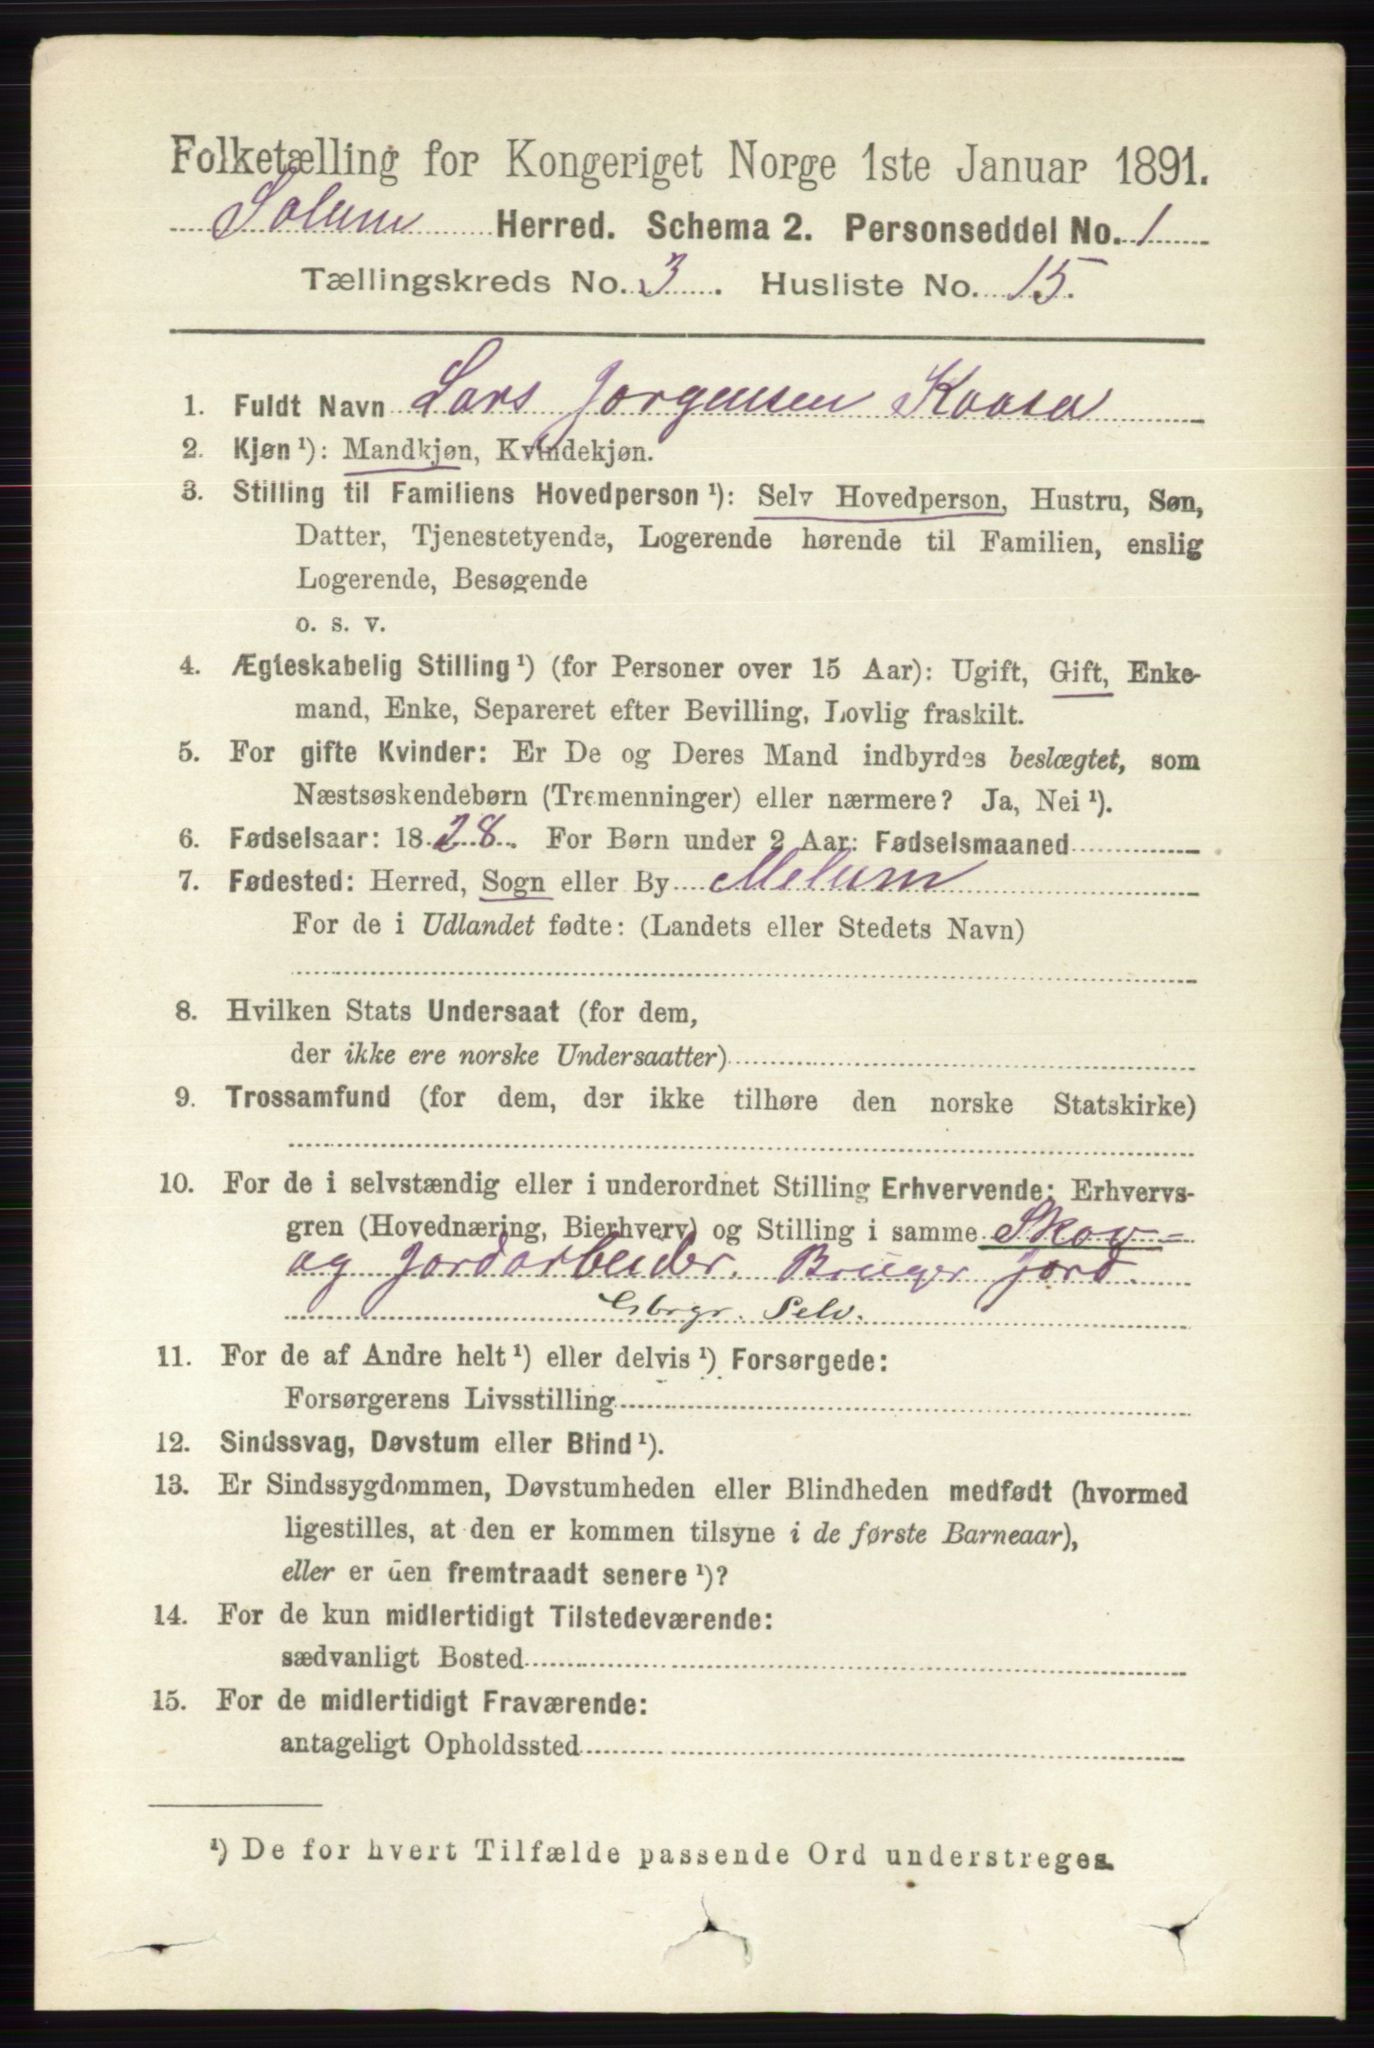 Folketælling for Kongeriget Norge 1ste Januar 1891.
Solum Herred. Schema 2. Personseddel No. 1
Tællingskreds No. 3. Husliste No. 15.
1. Fuldt Navn Lars Jorgensen Kaasa
2. Kjøn ¹): Mandkjøn, Kvindekjøn.
3. Stilling til Familiens Hovedperson ¹): Selv Hovedperson, Hustru, Søn,
Datter, Tjenestetyende, Logerende hørende til Familien, enslig
Logerende, Besøgende
o. s. v.
4. Ægteskabelig Stilling ¹) (for Personer over 15 Aar): Ugift, Gift, Enke-
mand, Enke, Separeret efter Bevilling, Lovlig fraskilt.
5. For gifte Kvinder: Er De og Deres Mand indbyrdes beslægtet, som
Næstsøskendebørn (Tremenninger) eller nærmere? Ja, Nei ¹).
6. Fødselsaar: 1828. For Børn under 2 Aar: Fødselsmaaned
7. Fødested: Herred, Sogn eller By Melum
For de i Udlandet fødte: (Landets eller Stedets Navn)
8. Hvilken Stats Undersaat (for dem,
der ikke ere norske Undersaatter)
9. Trossamfund (for dem, der ikke tilhøre den norske Statskirke)
10. For de i selvstændig eller i underordnet Stilling Erhvervende: Erhvervs-
gren (Hovednæring, Bierhverv) og Stilling i samme Skov=
og Jordarbeider. Bruger jord.
Gbrgr. Selv.
11. For de af Andre helt ¹) eller delvis ¹) Forsørgede:
Forsørgerens Livsstilling
12. Sindssvag, Døvstum eller Blind ¹).
13. Er Sindssygdommen, Døvstumheden eller Blindheden medfødt (hvormed
ligestilles, at den er kommen tilsyne i de første Barneaar),
eller er den fremtraadt senere ¹)?
14. For de kun midlertidigt Tilstedeværende:
sædvanligt Bosted
15. For de midlertidigt Fraværende:
antageligt Opholdssted
¹) De for hvert Tilfælde passende Ord understreges.